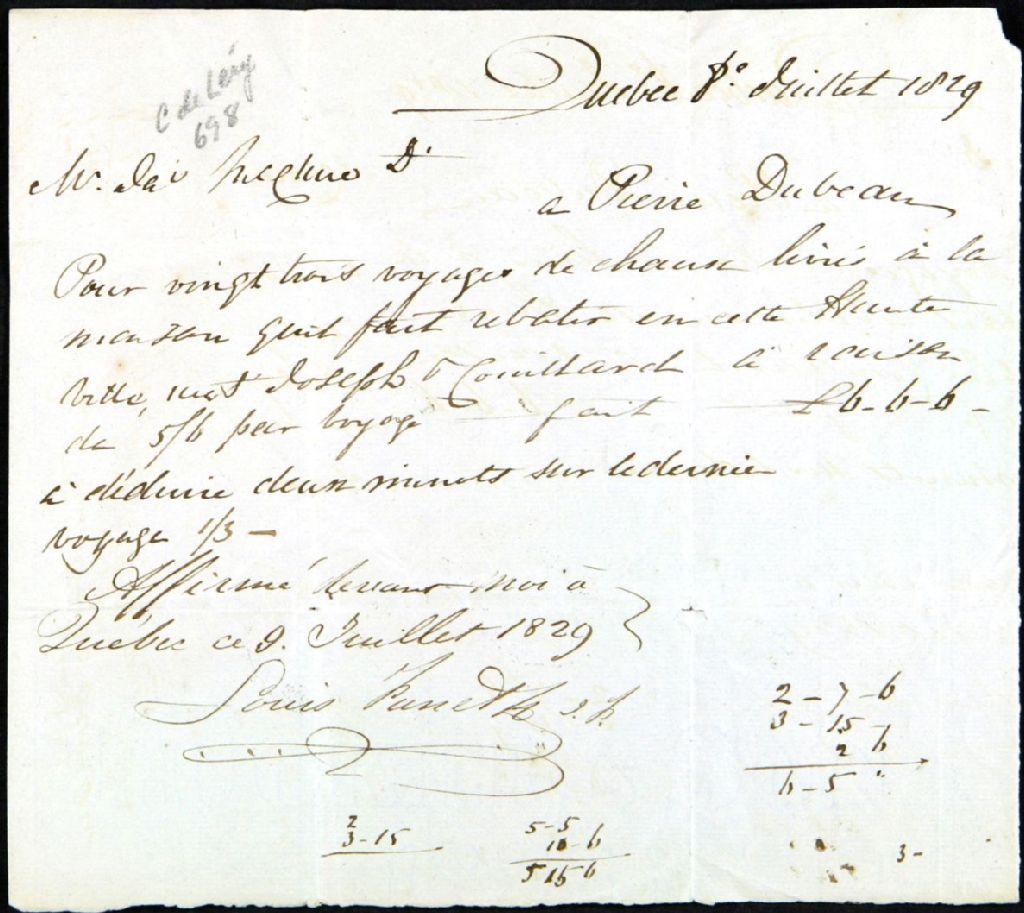 C de Léry
698
Quebec 8.º Juillet 1829
Mr. McClure Dr
a Pierre Dubeau
Pour vingt trois voyages de chaux livrés à la
maison quil fait rebatir en cette Haute
Ville, Joseph Couillard à raison
de 5/6 par voyage fait £6-6-6-
à déduire deux minots sur le dernier
voyage 1/3 -
Affirmé devant moi à
Québec ce 9. Juillet 1829
Louis Panet
2 - 7 - 6
3 - 15 -
2 6
6 - 5 "
2
3-15
5-5
10-6
5 15 6
3 -